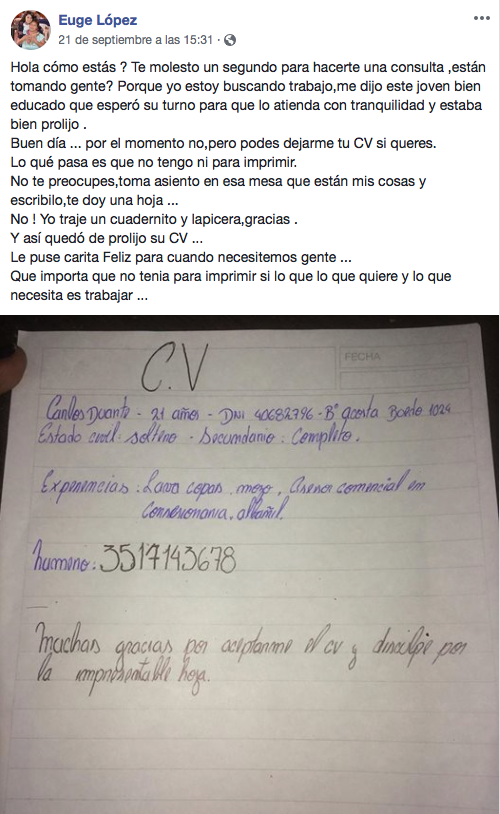 Euge López
21 de septiembre a las 15:31 ·
Hola cómo estás ? Te molesto un segundo para hacerte una consulta ,están
tomando gente? Porque yo estoy buscando trabajo,me dijo este joven bien
educado que esperó su turno para que lo atienda con tranquilidad y estaba
bien prolijo .
Buen día ... por el momento no,pero podes dejarme tu CV si queres.
Lo qué pasa es que no tengo ni para imprimir.
No te preocupes,toma asiento en esa mesa que están mis cosas y
escribilo,te doy una hoja ...
No ! Yo traje un cuadernito y lapicera,gracias .
Y así quedó de prolijo su CV ...
Le puse carita Feliz para cuando necesitemos gente ...
Que importa que no tenia para imprimir si lo que lo que quiere y lo que
necesita es trabajar ...
C.V
FECHA
Carlos Duarte - 21 años - DNI 40682796 - Bº acosta Boedo 1024
Estado civil: soltero - Secundario: Completo.
Experiencias: Lava copas, mozo, asesor comercial en
Concesionaria, albañil.
humero: 3517143678
Muchas gracias por aceptarme el cv y disculpe por
la impresentable hoja.